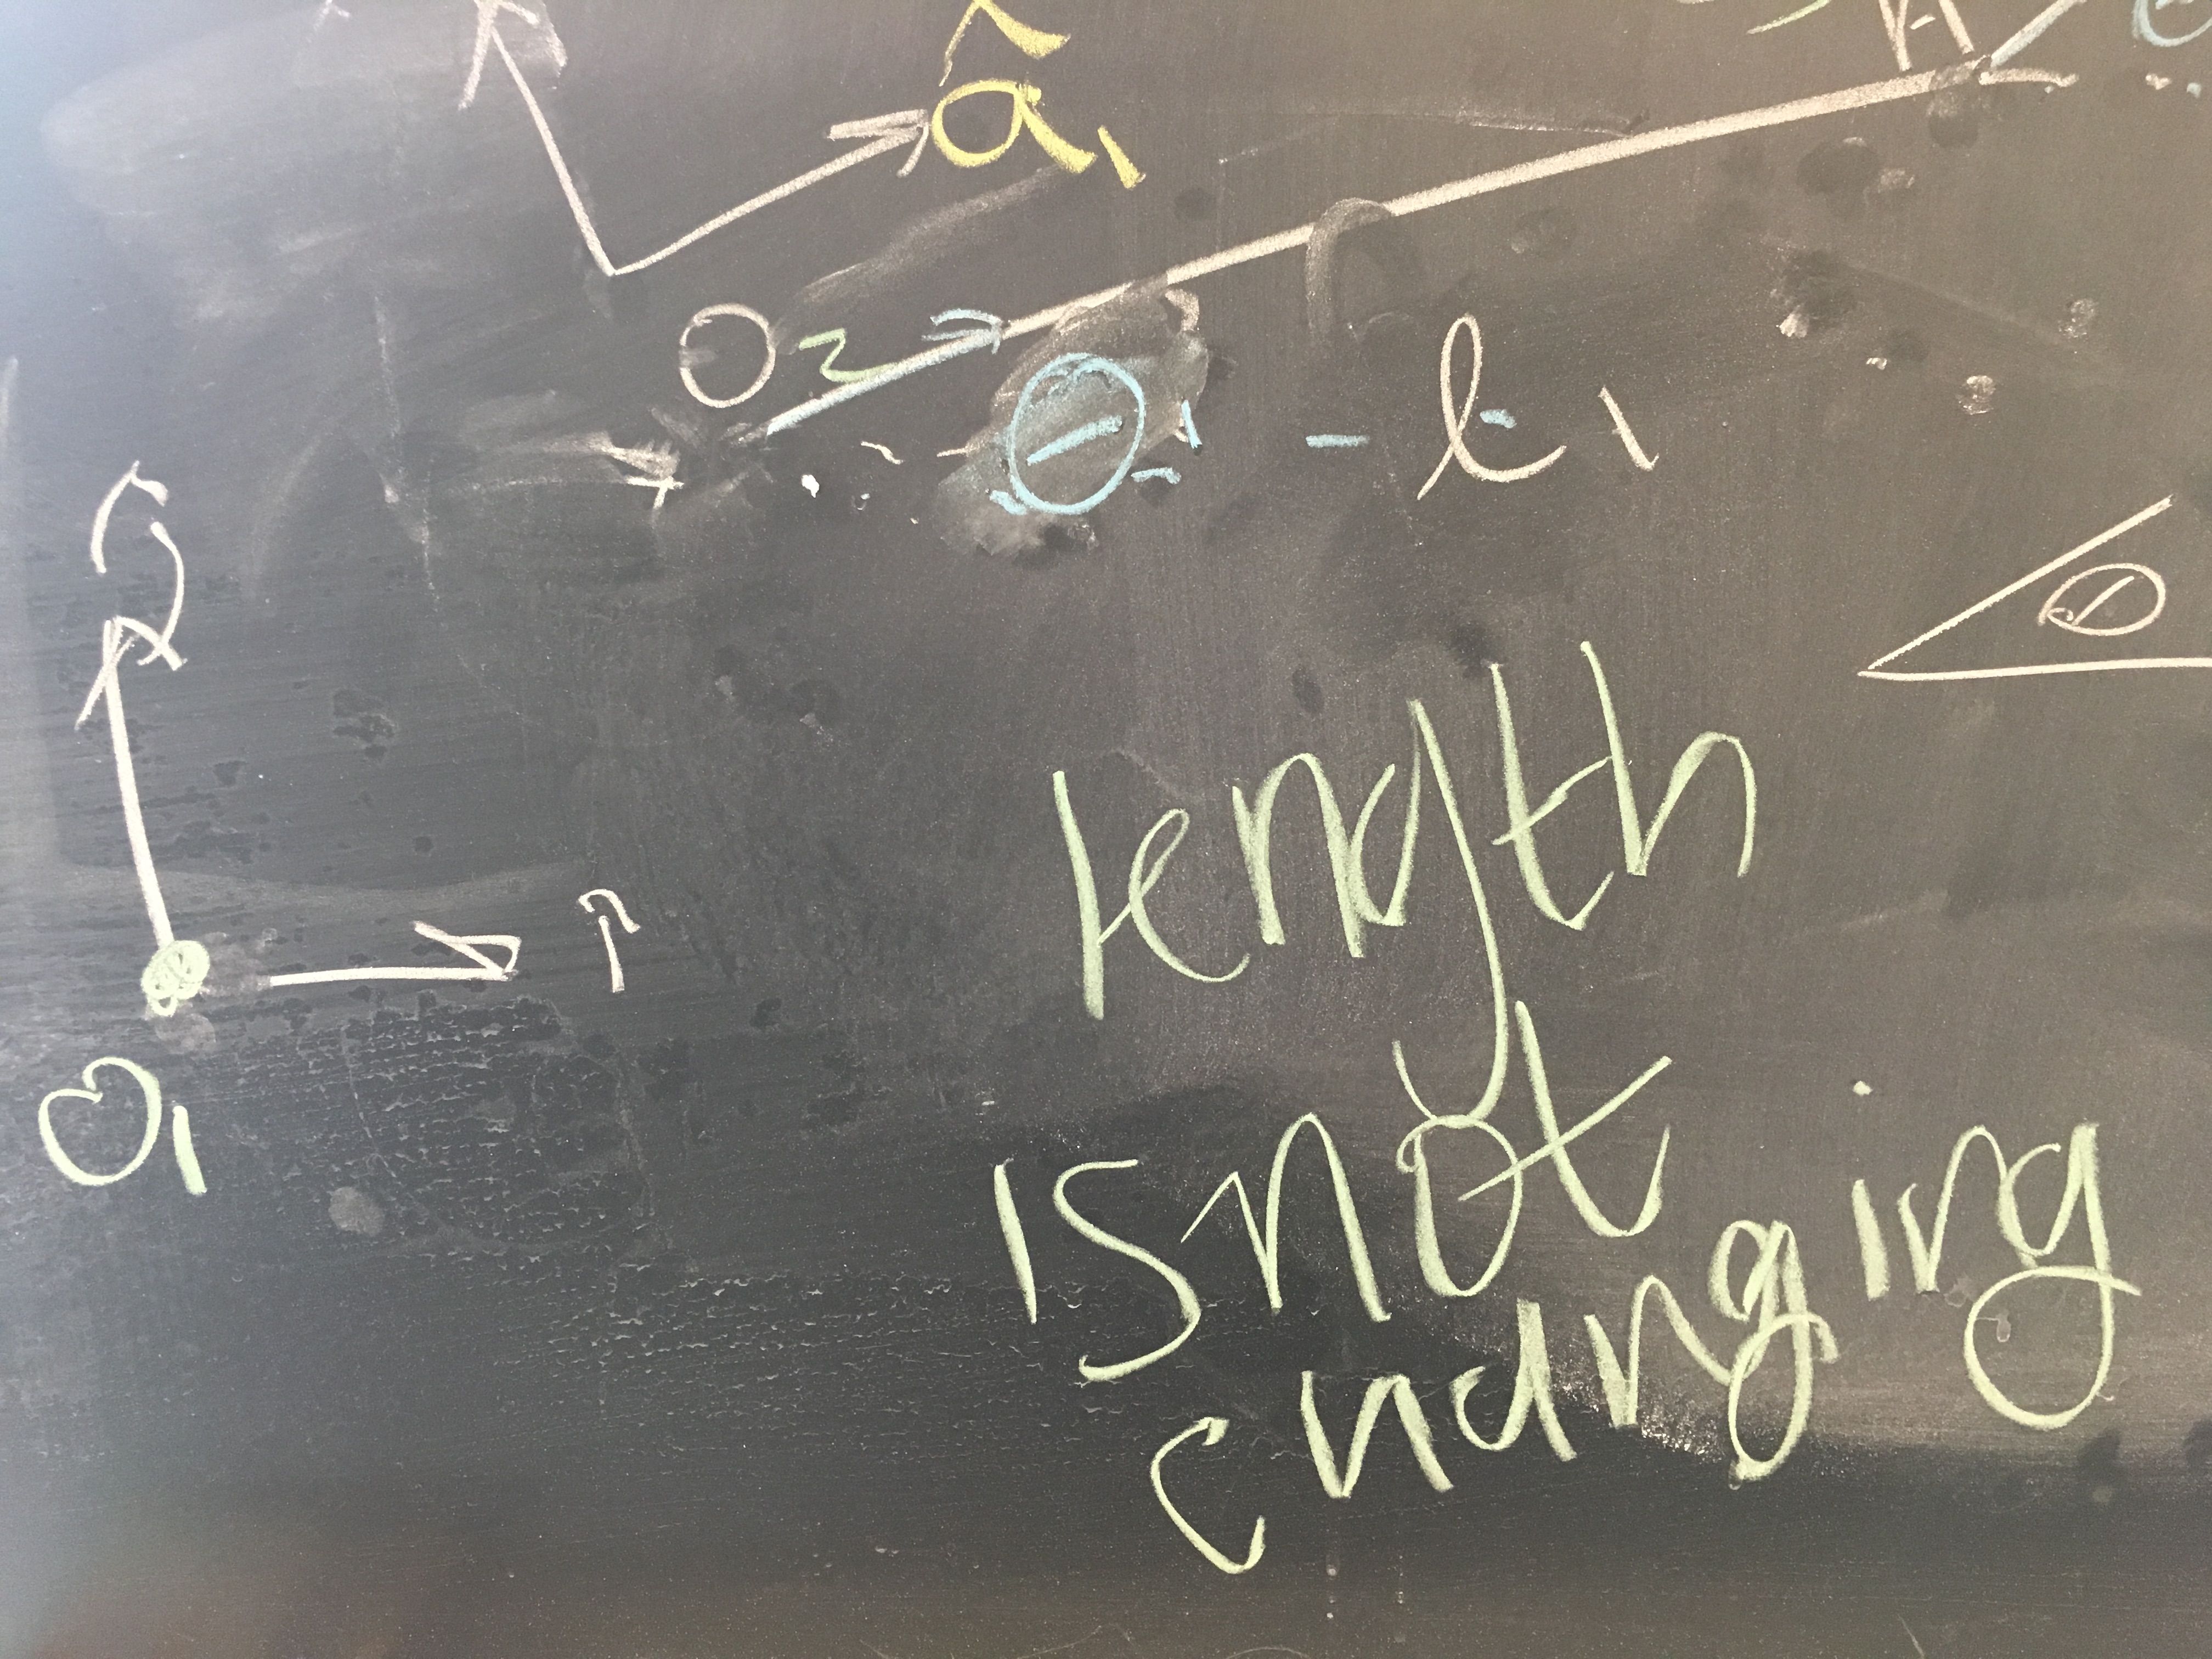 â₁
A
O₂
θ₁
l₁
ĵ
î
O₁
length
is not
changing